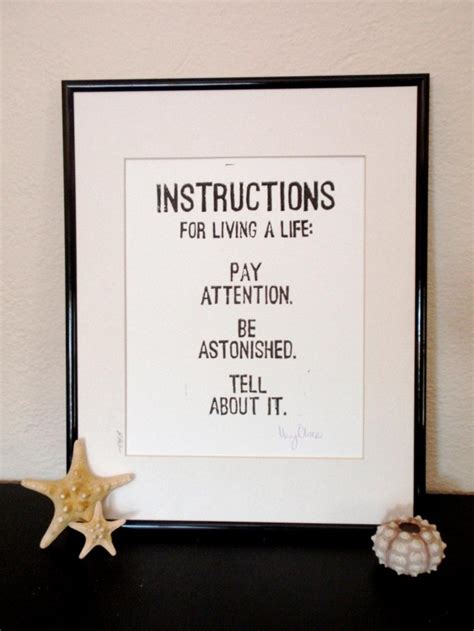 INSTRUCTIONS
FOR LIVING A LIFE:
PAY
ATTENTION.
BE
ASTONISHED.
TELL
ABOUT IT.